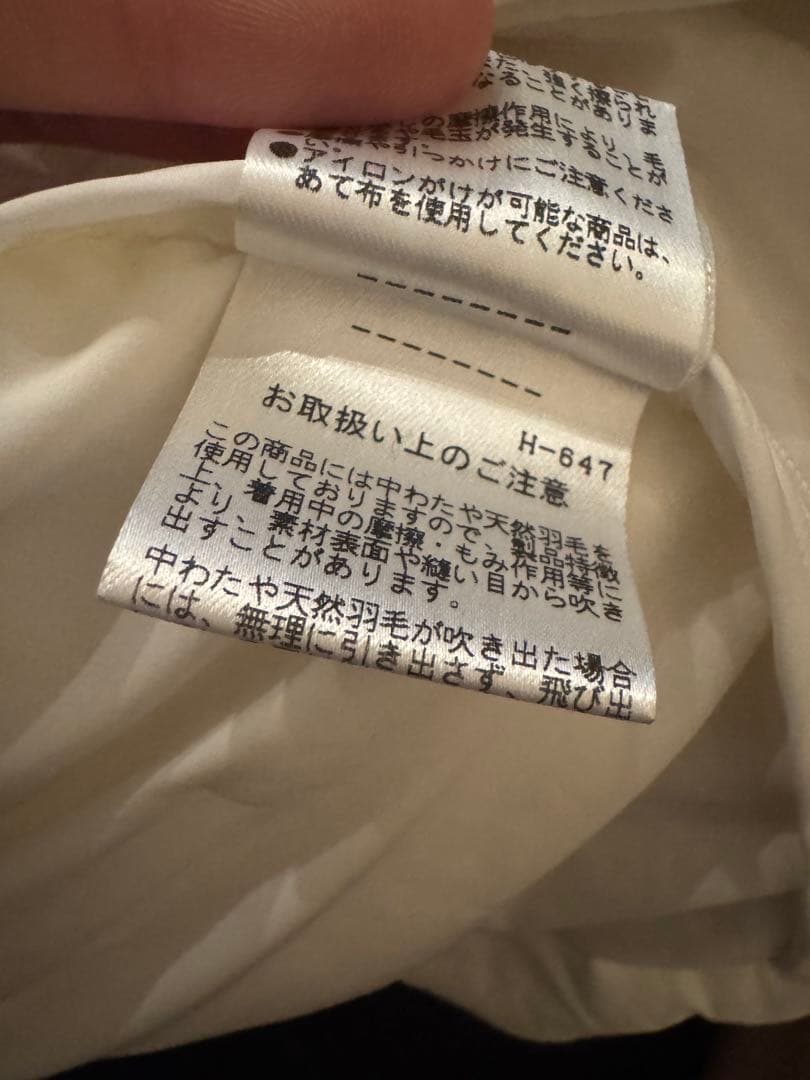 強く擦られ
なることがありま
の摩擦作用により、毛
毛玉が発生することが
引っかけにご注意くださ
●アイロンがけが可能な商品は、
あて布を使用してください。
---------
--------
H-647
お取扱い上のご注意
この商品には中わたや天然羽毛を
使用しておりますので、製品特徴
上、着用中の摩擦・もみ作用等に
より、素材表面や縫い目から吹き
出すことがあります。
中わたや天然羽毛が吹き出た場合
には、無理に引き出さず、飛び出